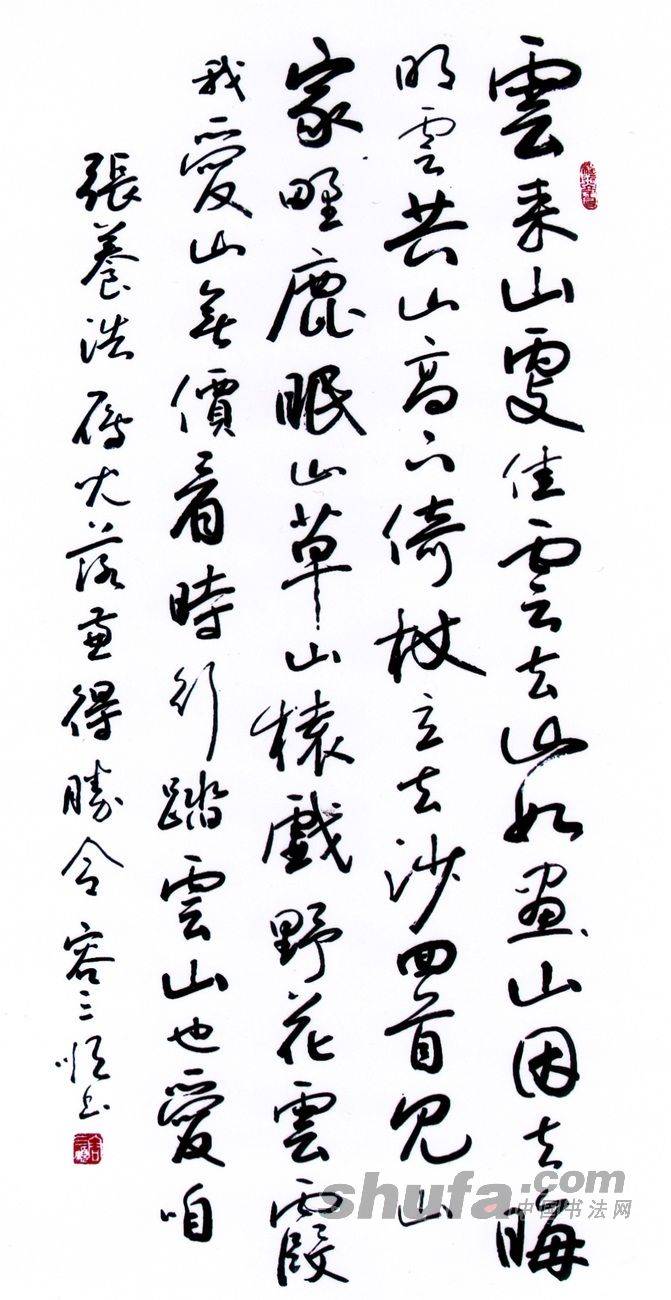 雲来山更佳雲去山如畫山因云晦
明雲共山高下倚杖立云沙回首見山
家野鹿眠山草山猿戲野花雲霞
我愛山無價看時行踏雲山也愛咱
張養浩雁兒落兼得勝令
shufa.com
中国书法网